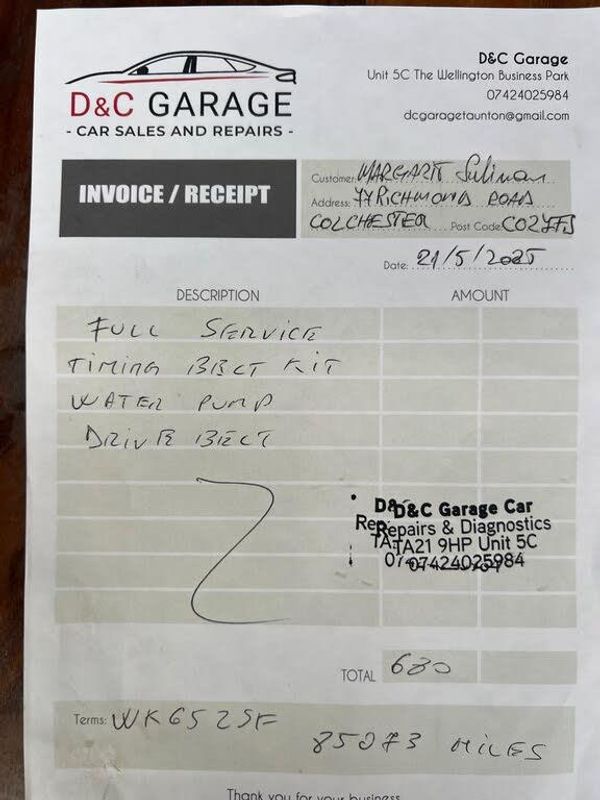 D&C GARAGE
- CAR SALES AND REPAIRS -
D&C Garage
Unit 5C The Wellington Business Park
07424025984
dcgaragetaunton@gmail.com
INVOICE / RECEIPT
Customer:
Address: RICHMOND ROAD
COLCHESTER Post Code:
Date: 21/5/2025
DESCRIPTION AMOUNT
FULL SERVICE
TIMING BELT KIT
WATER PUMP
DRIVE BELT
D&C Garage Car
Repairs & Diagnostics
TA21 9HP Unit 5C
07424025984
TOTAL 680
Terms:
MILES
Thank you for your business